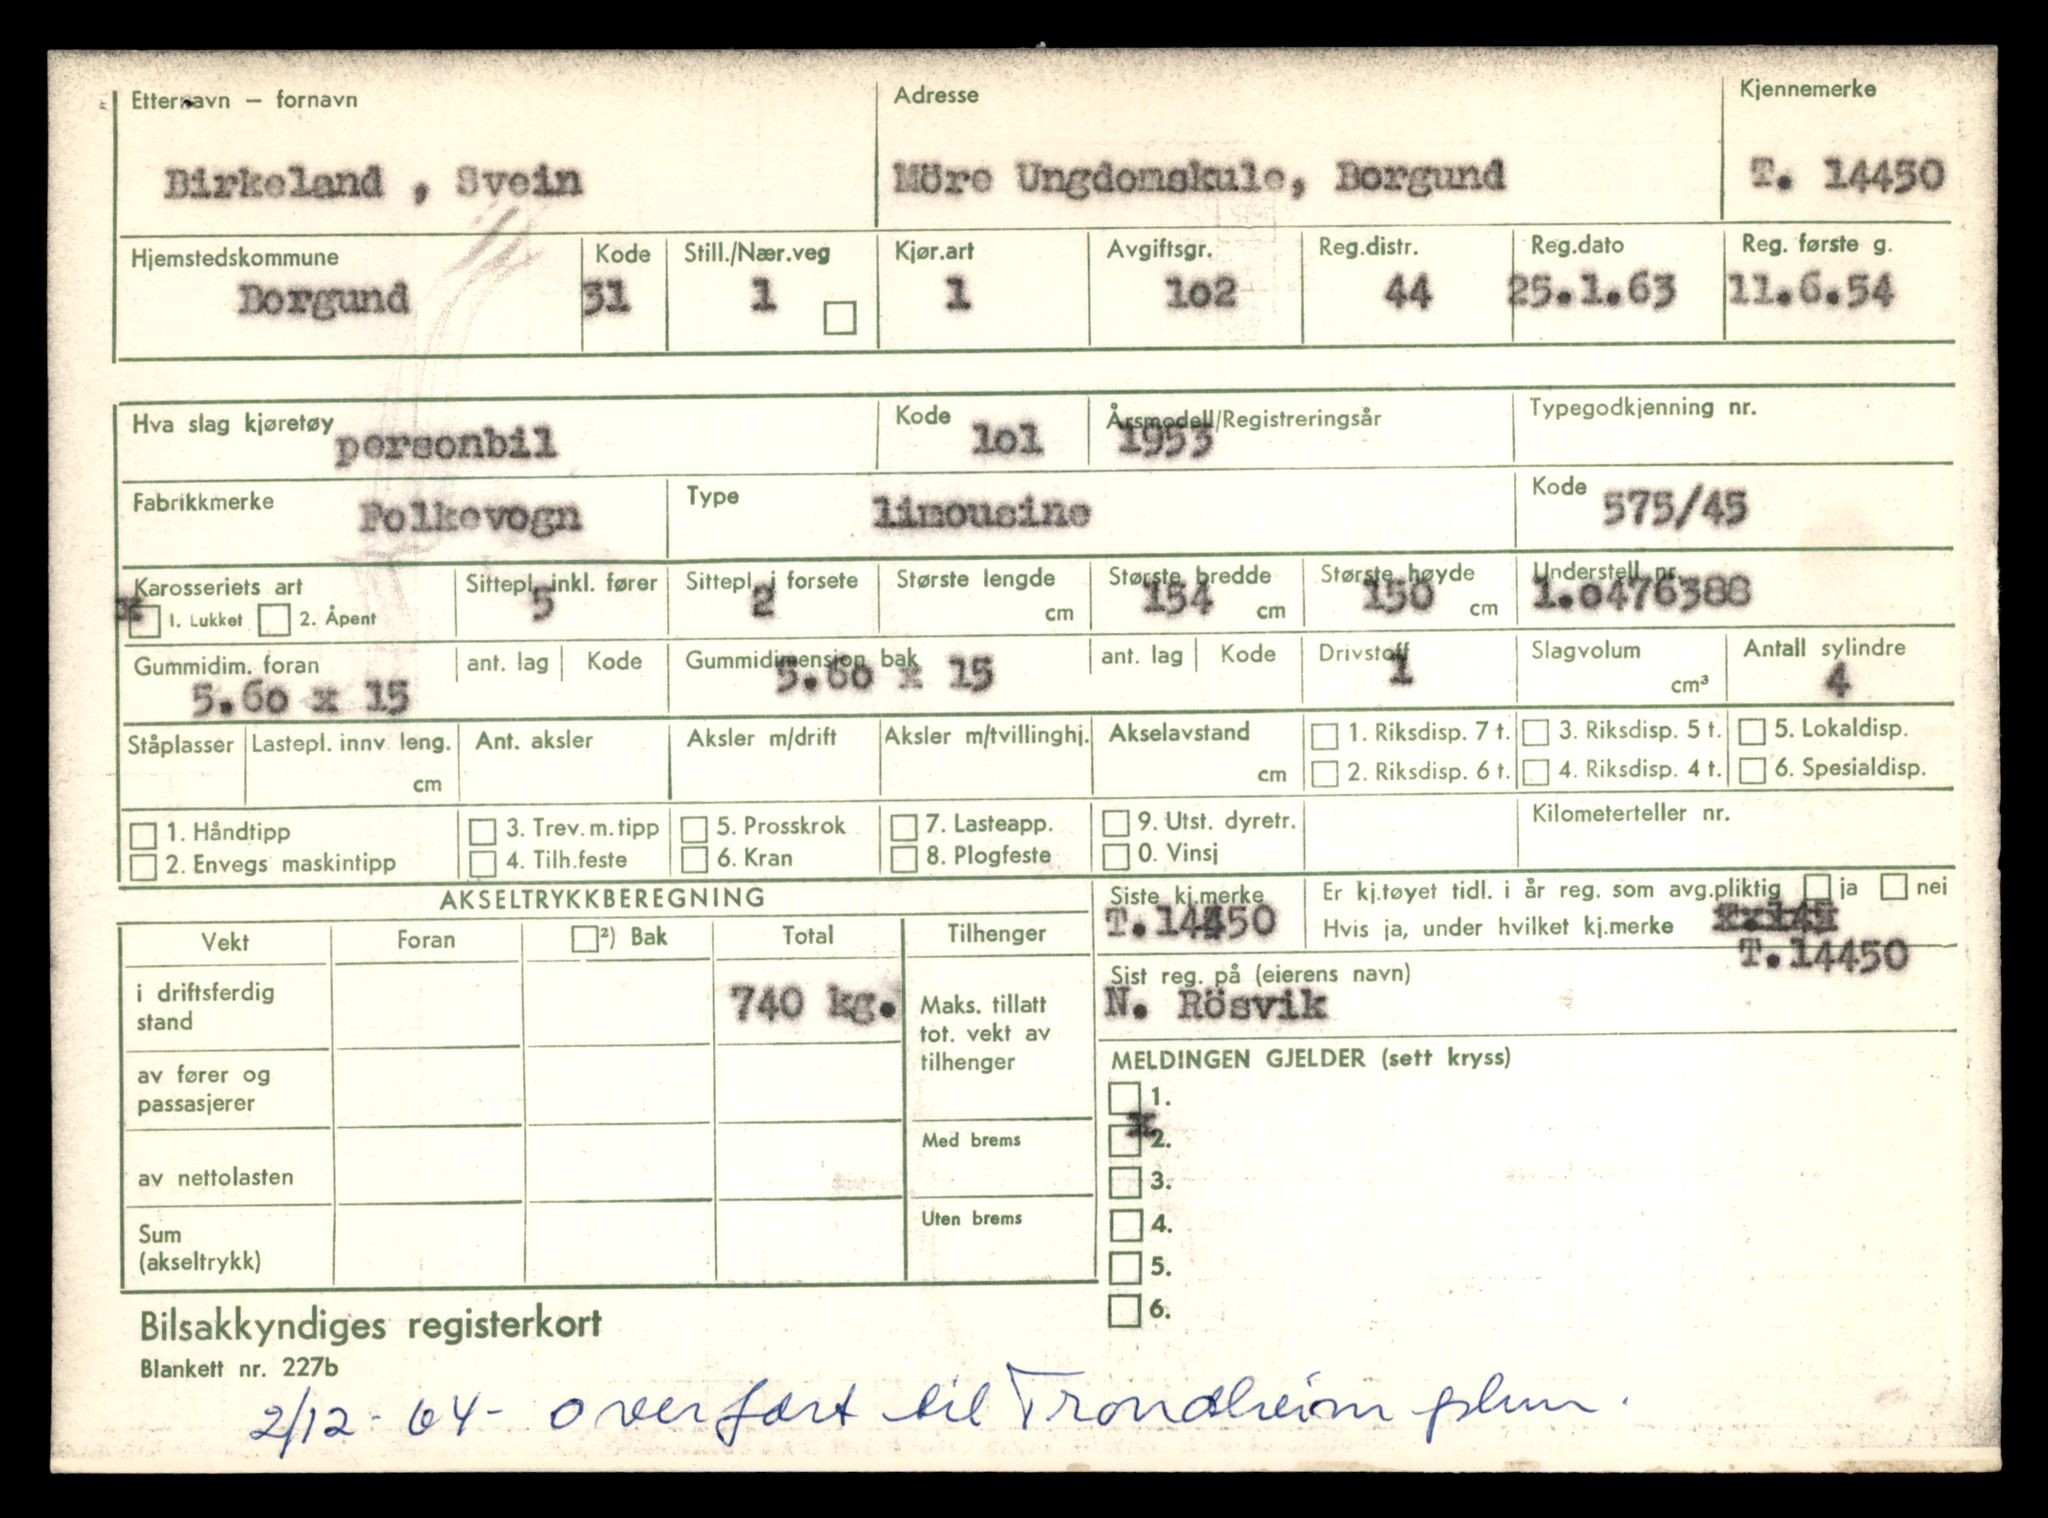 Etternavn – fornavn Adresse Kjennemerke
Birkeland , Svein Möre Ungdomskule, Borgund T. 14450
Hjemstedskommune Kode Still./Nær.veg Kjør.art Avgiftsgr. Reg.distr. Reg.dato Reg. første g.
Borgund 31 1 1 1o2 44 25.1.63 11.6.54
Hva slag kjøretøy Kode Årsmodell/Registreringsår Typegodkjenning nr.
personbil 1o1 1953
Fabrikkmerke Type Kode
Folkevogn limousine 575/45
Karosseriets art Sittepl. inkl. fører Sittepl. i forsete Største lengde Største bredde Største høyde Understell nr.
x 1. Lukket 2. Åpent 5 2 cm 154 cm 150 cm 1.0476388
Gummidim. foran ant. lag Kode Gummidimensjon bak ant. lag Kode Drivstoff Slagvolum Antall sylindre
5.60 x 15 5.60 x 15 1 cm³ 4
Ståplasser Lastepl. innv. leng. Ant. aksler Aksler m/drift Aksler m/tvillinghj. Akselavstand 1. Riksdisp. 7 t. 3. Riksdisp. 5 t. 5. Lokaldisp.
cm cm 2. Riksdisp. 6 t. 4. Riksdisp. 4 t. 6. Spesialdisp.
1. Håndtipp 3. Trev. m. tipp 5. Prosskrok 7. Lasteapp. 9. Utst. dyretr. Kilometerteller nr.
2. Envegs maskintipp 4. Tilh.feste 6. Kran 8. Plogfeste 0. Vinsj
AKSELTRYKKBEREGNING Siste kj.merke Er kj.tøyet tidl. i år reg. som avg.pliktig ja nei
T.14450 Hvis ja, under hvilket kj.merke
T.14450
Vekt Foran ²) Bak Total Tilhenger
Sist reg. på (eierens navn)
N. Rösvik
i driftsferdig
stand
740 kg. Maks. tillatt
tot. vekt av
tilhenger
MELDINGEN GJELDER (sett kryss)
av fører og
passasjerer
1.
x 2.
Med brems
av nettolasten 3.
Uten brems 4.
Sum
(akseltrykk)
5.
6.
Bilsakkyndiges registerkort
Blankett nr. 227b
2/12-64- overført til Trondheim